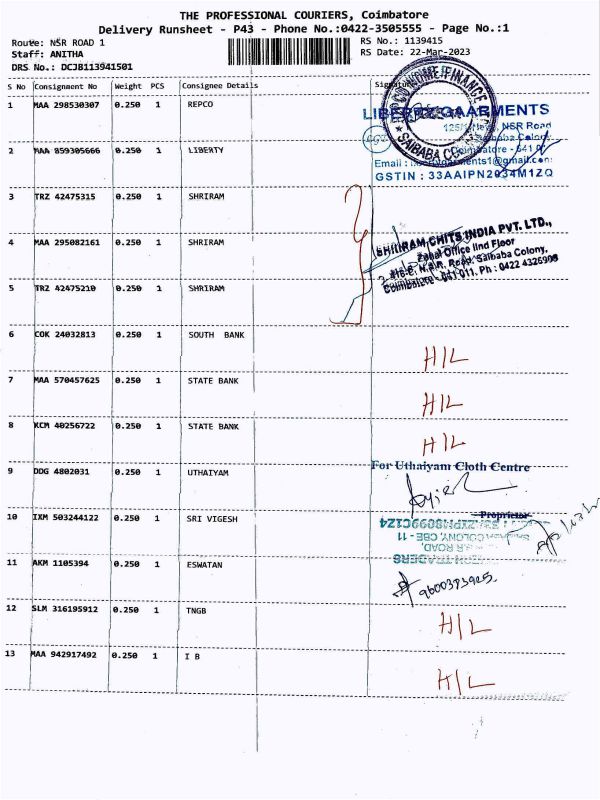 THE PROFESSIONAL COURIERS, Coimbatore
Delivery Runsheet - P43 - Phone No.:0422-3505555 - Page No.:1
Route: NSR ROAD 1
RS No.: 1139415
Staff: ANITHA
RS Date: 22-Mar-2023
DRS No.: DCJB113941501
S No Consignment No Weight PCS Consignee Details Signature
1 MAA 298530307 0.250 1 REPCO
HOME FINANCE
SAIBABA
LIBERTY GAARMENTS
NSR Road
Colony
Coimbatore - 641
2 MAA 859305666 0.250 1 LIBERTY
Email :
GSTIN : 33AAIPN2034M1ZQ
3 TRZ 42475315 0.250 1 SHRIRAM
SHRIRAM CHITS INDIA PVT. LTD.,
4 MAA 295082161 0.250 1 SHRIRAM
Zonal Office IInd Floor
N.S.R. Road, Saibaba Colony,
Coimbatore - 641 011. Ph : 0422 4326999
5 TRZ 42475210 0.250 1 SHRIRAM
6 COK 24032813 0.250 1 SOUTH BANK
H/L
7 MAA 570457625 0.250 1 STATE BANK
H/L
8 KCM 40256722 0.250 1 STATE BANK
H/L
For Uthaiyam Cloth Centre
9 DDG 4802031 0.250 1 UTHAIYAM
Proprietor
10 IXM 503244122 0.250 1 SRI VIGESH
COLONY, CBE - 11
ROAD,
TRADERS
11 AKM 1105394 0.250 1 ESWATAN
9600393925
12 SLM 316195912 0.250 1 TNGB
H/L
13 MAA 942917492 0.250 1 I B
H/L